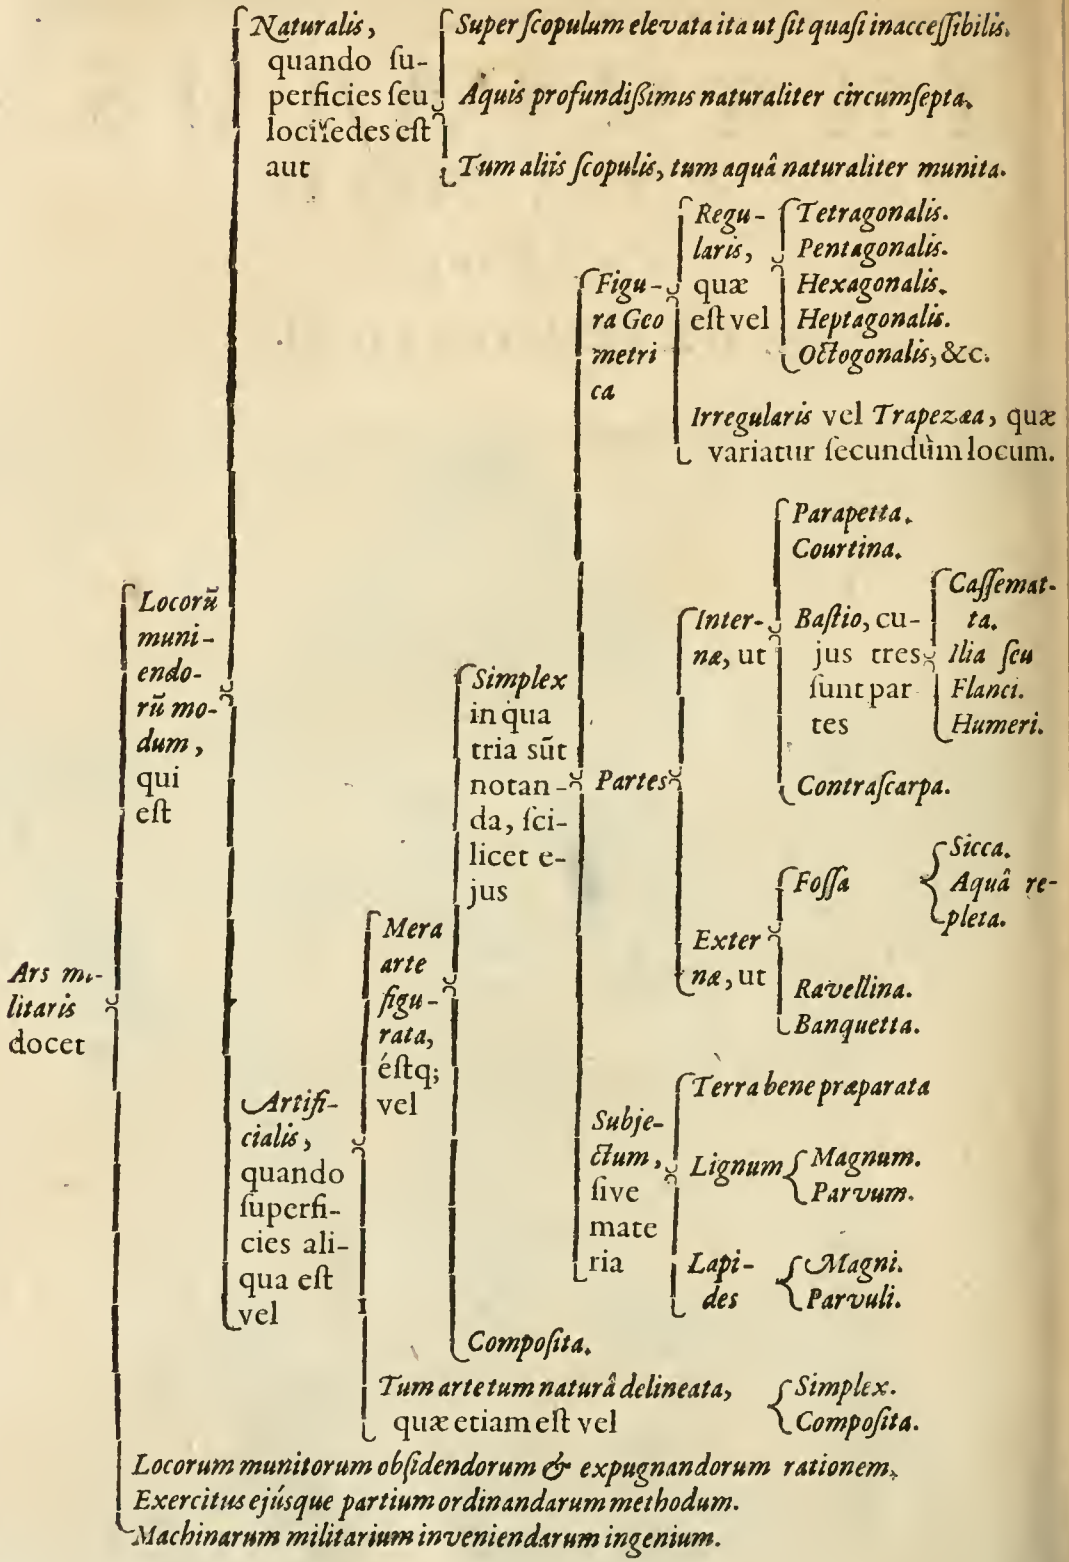 Ars mi-
litaris
docet
Locorũ
muni-
endo-
rũ mo-
dum,
qui
eſt
Naturalis,
quando ſu-
perficies ſeu
loci ſedes eſt
aut
Super ſcopulum elevata ita ut ſit quaſi inacceſſibilis.
Aquis profundißimis naturaliter circumſepta.
Tum aliis ſcopulis, tum aquâ naturaliter munita.
Artifi-
cialis,
quando
ſuperfi-
cies ali-
qua eſt
vel
Mera
arte
figu-
rata,
éſtq;
vel
Simplex
in qua
tria sũt
notan-
da, ſci-
licet e-
jus
Figu-
ra Geo
metri
ca
Regu-
laris,
quæ
eſt vel
Tetragonalis.
Pentagonalis.
Hexagonalis.
Heptagonalis.
Octogonalis, &c.
Irregularis vel Trapezæa, quæ
variatur ſecundùm locum.
Partes
Inter-
næ, ut
Parapetta.
Courtina.
Baſtio, cu-
jus tres
ſunt par
tes
Caſſemat-
ta.
Ilia ſeu
Flanci.
Humeri.
Contraſcarpa.
Exter
næ, ut
Foſſa
Sicca.
Aquâ re-
pleta.
Ravellina.
Banquetta.
Subje-
ctum,
ſive
mate
ria
Terra bene præparata
Lignum
Magnum.
Parvum.
Lapi-
des
Magni.
Parvuli.
Compoſita.
Tum arte tum naturâ delineata,
quæ etiam eſt vel
Simplex.
Compoſita.
Locorum munitorum obſidendorum & expugnandorum rationem.
Exercitus ejúsque partium ordinandarum methodum.
Machinarum militarium inveniendarum ingenium.